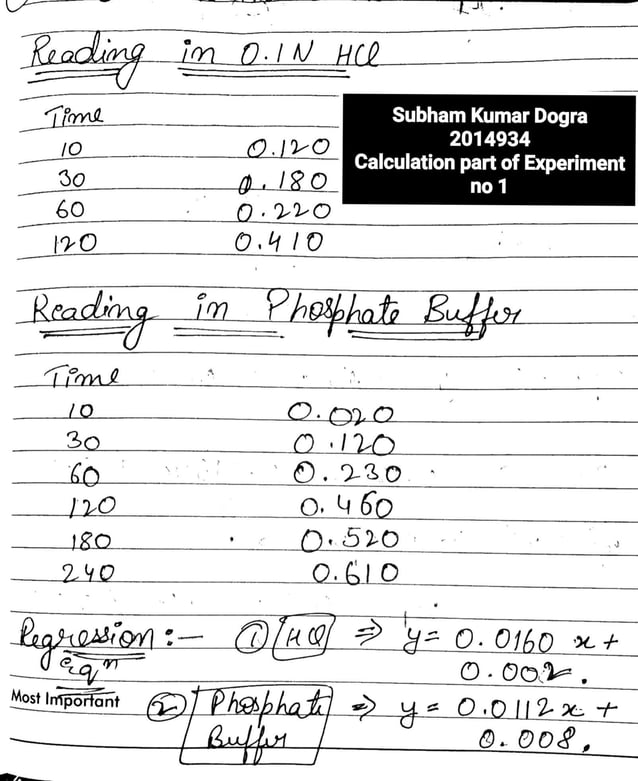 Reading in 0.1N HCl
Subham Kumar Dogra
2014934
Calculation part of Experiment
no 1
Time
10 0.120
30 0.180
60 0.220
120 0.410
Reading in Phosphate Buffer
Time
10 0.020
30 0.120
60 0.230
120 0.460
180 0.520
240 0.610
Regression :— ① HCl ⇒ y = 0.0160 x +
eqn 0.002.
Most Important ② Phosphate ⇒ y = 0.0112 x +
Buffer 0.008.